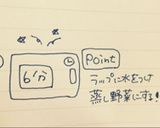 6分
Point
ラップに水をつけ
蒸し野菜にする!